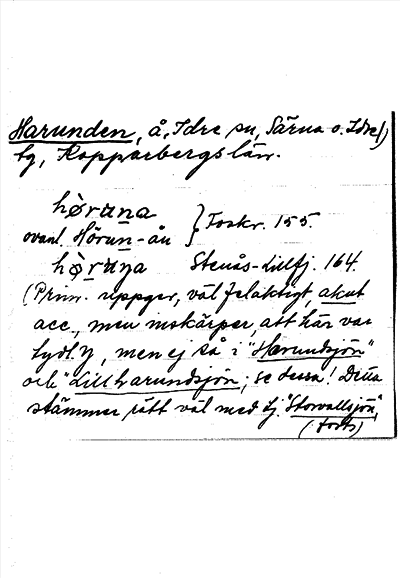 Harunden, å, Idre sn, Särna o. Idre
tg, Kopparbergs län.
hòruna } Foskr. 155.
ovanl. Hörun-ån
hòruna Stenås-Lillfj. 164.
(Prim. uppger, väl felaktigt, akut
acc., men inskärper, att här var
tydl. y, men ej så i "Harundsjön"
och "Lillharundsjön; se dessa! Detta
stämmer rätt väl med lj. "Storvallsjön"
(forts)